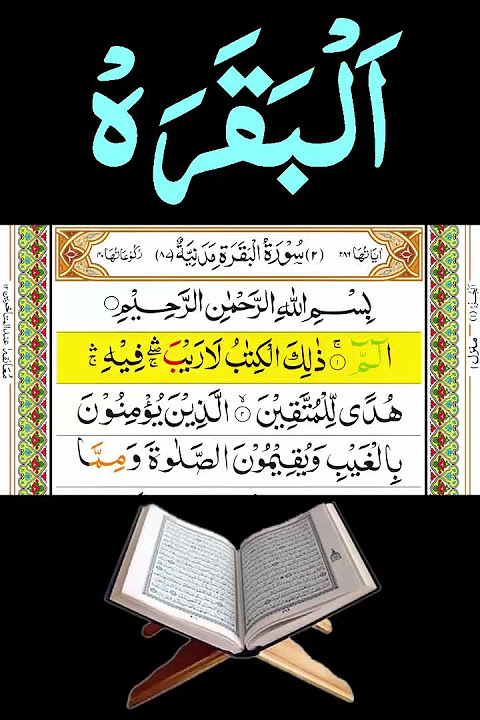 اَلْبَقَرَهْ
اٰیَاتُهَا ۲۸۶ (۲) سُوْرَةُ الْبَقَرَةِ مَدَنِیَّةٌ (۸۷) رُكُوْعَاتُهَا ۴۰
بِسْمِ اللهِ الرَّحْمٰنِ الرَّحِیْمِ
الٓمّٓ ۚ ۱ ذٰلِكَ الْكِتٰبُ لَا رَیْبَ ۛ ۖ فِیْهِ ۛ ۚ
هُدًی لِّلْمُتَّقِیْنَ ۙ ۲ الَّذِیْنَ یُؤْمِنُوْنَ
بِالْغَیْبِ وَیُقِیْمُوْنَ الصَّلٰوةَ وَمِمَّا